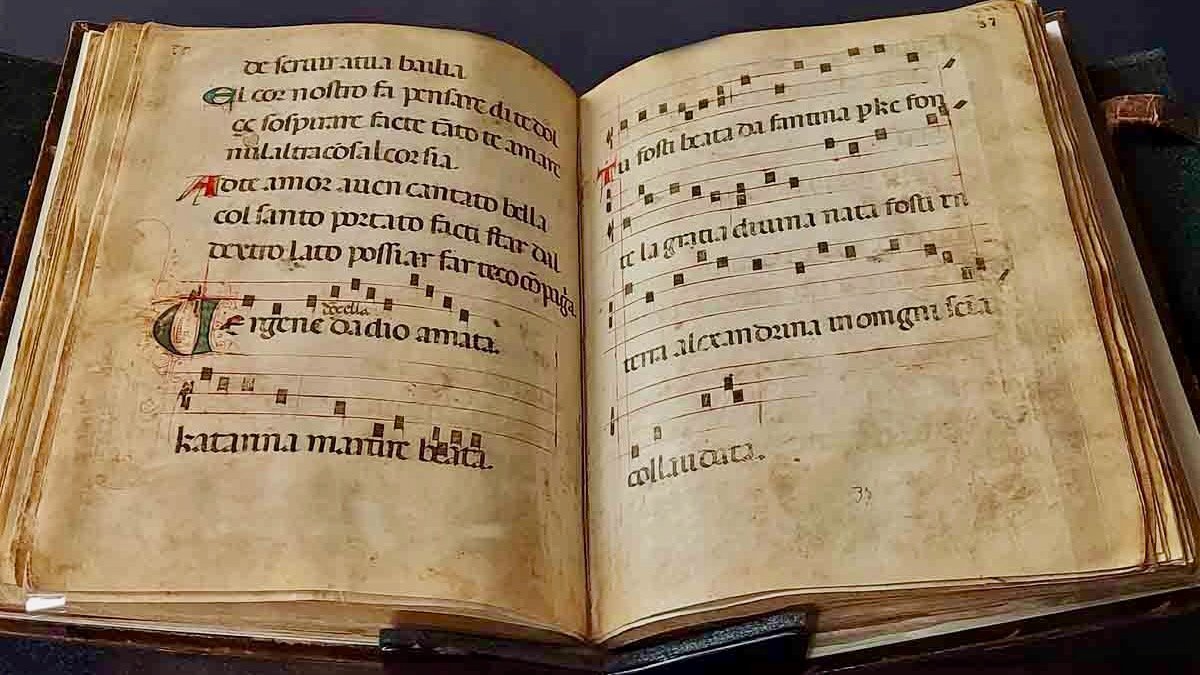 de seruir atua bailia
El cor nostro fa pensare di te dōl
ce sospirare facte tāto te amare
nulaltra cosal cor sia.
Adote amor auen cantato bella
col santo portato facti star dal
dextro lato possiar far teco cōpagīa
doncella
Vergene dadio amata.
katarina martire beata.
37
Tu fosti beata da fantina pke fon
te la gratia diuina nata fosti en
terra alexandrina in omgni sciēa
collaudata.